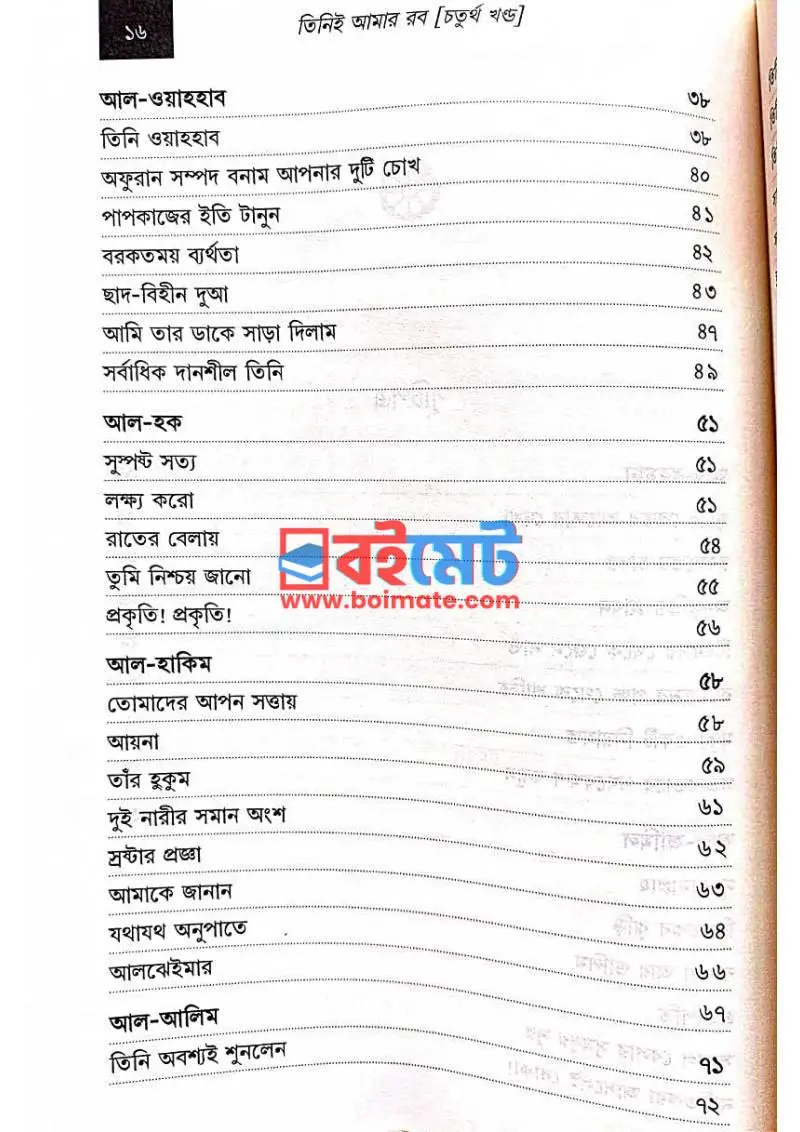 ১৬
তিনিই আমার রব [চতুর্থ খণ্ড]
আল-ওয়াহহাব ৩৮
তিনি ওয়াহহাব ৩৮
অফুরান সম্পদ বনাম আপনার দুটি চোখ ৪০
পাপকাজের ইতি টানুন ৪১
বরকতময় ব্যর্থতা ৪২
ছাদ-বিহীন দুআ ৪৩
আমি তার ডাকে সাড়া দিলাম ৪৭
সর্বাধিক দানশীল তিনি ৪৯
আল-হক ৫১
সুস্পষ্ট সত্য ৫১
লক্ষ্য করো ৫১
রাতের বেলায় ৫৪
তুমি নিশ্চয় জানো ৫৫
প্রকৃতি! প্রকৃতি! ৫৬
বইমেট
www.boimate.com
আল-হাকিম ৫৮
তোমাদের আপন সত্তায় ৫৮
আয়না ৫৯
তাঁর হুকুম ৬১
দুই নারীর সমান অংশ ৬২
স্রষ্টার প্রজ্ঞা ৬৩
আমাকে জানান ৬৪
যথাযথ অনুপাতে ৬৬
আলঝেইমার ৬৭
আল-আলিম ৭১
তিনি অবশ্যই শুনলেন ৭২